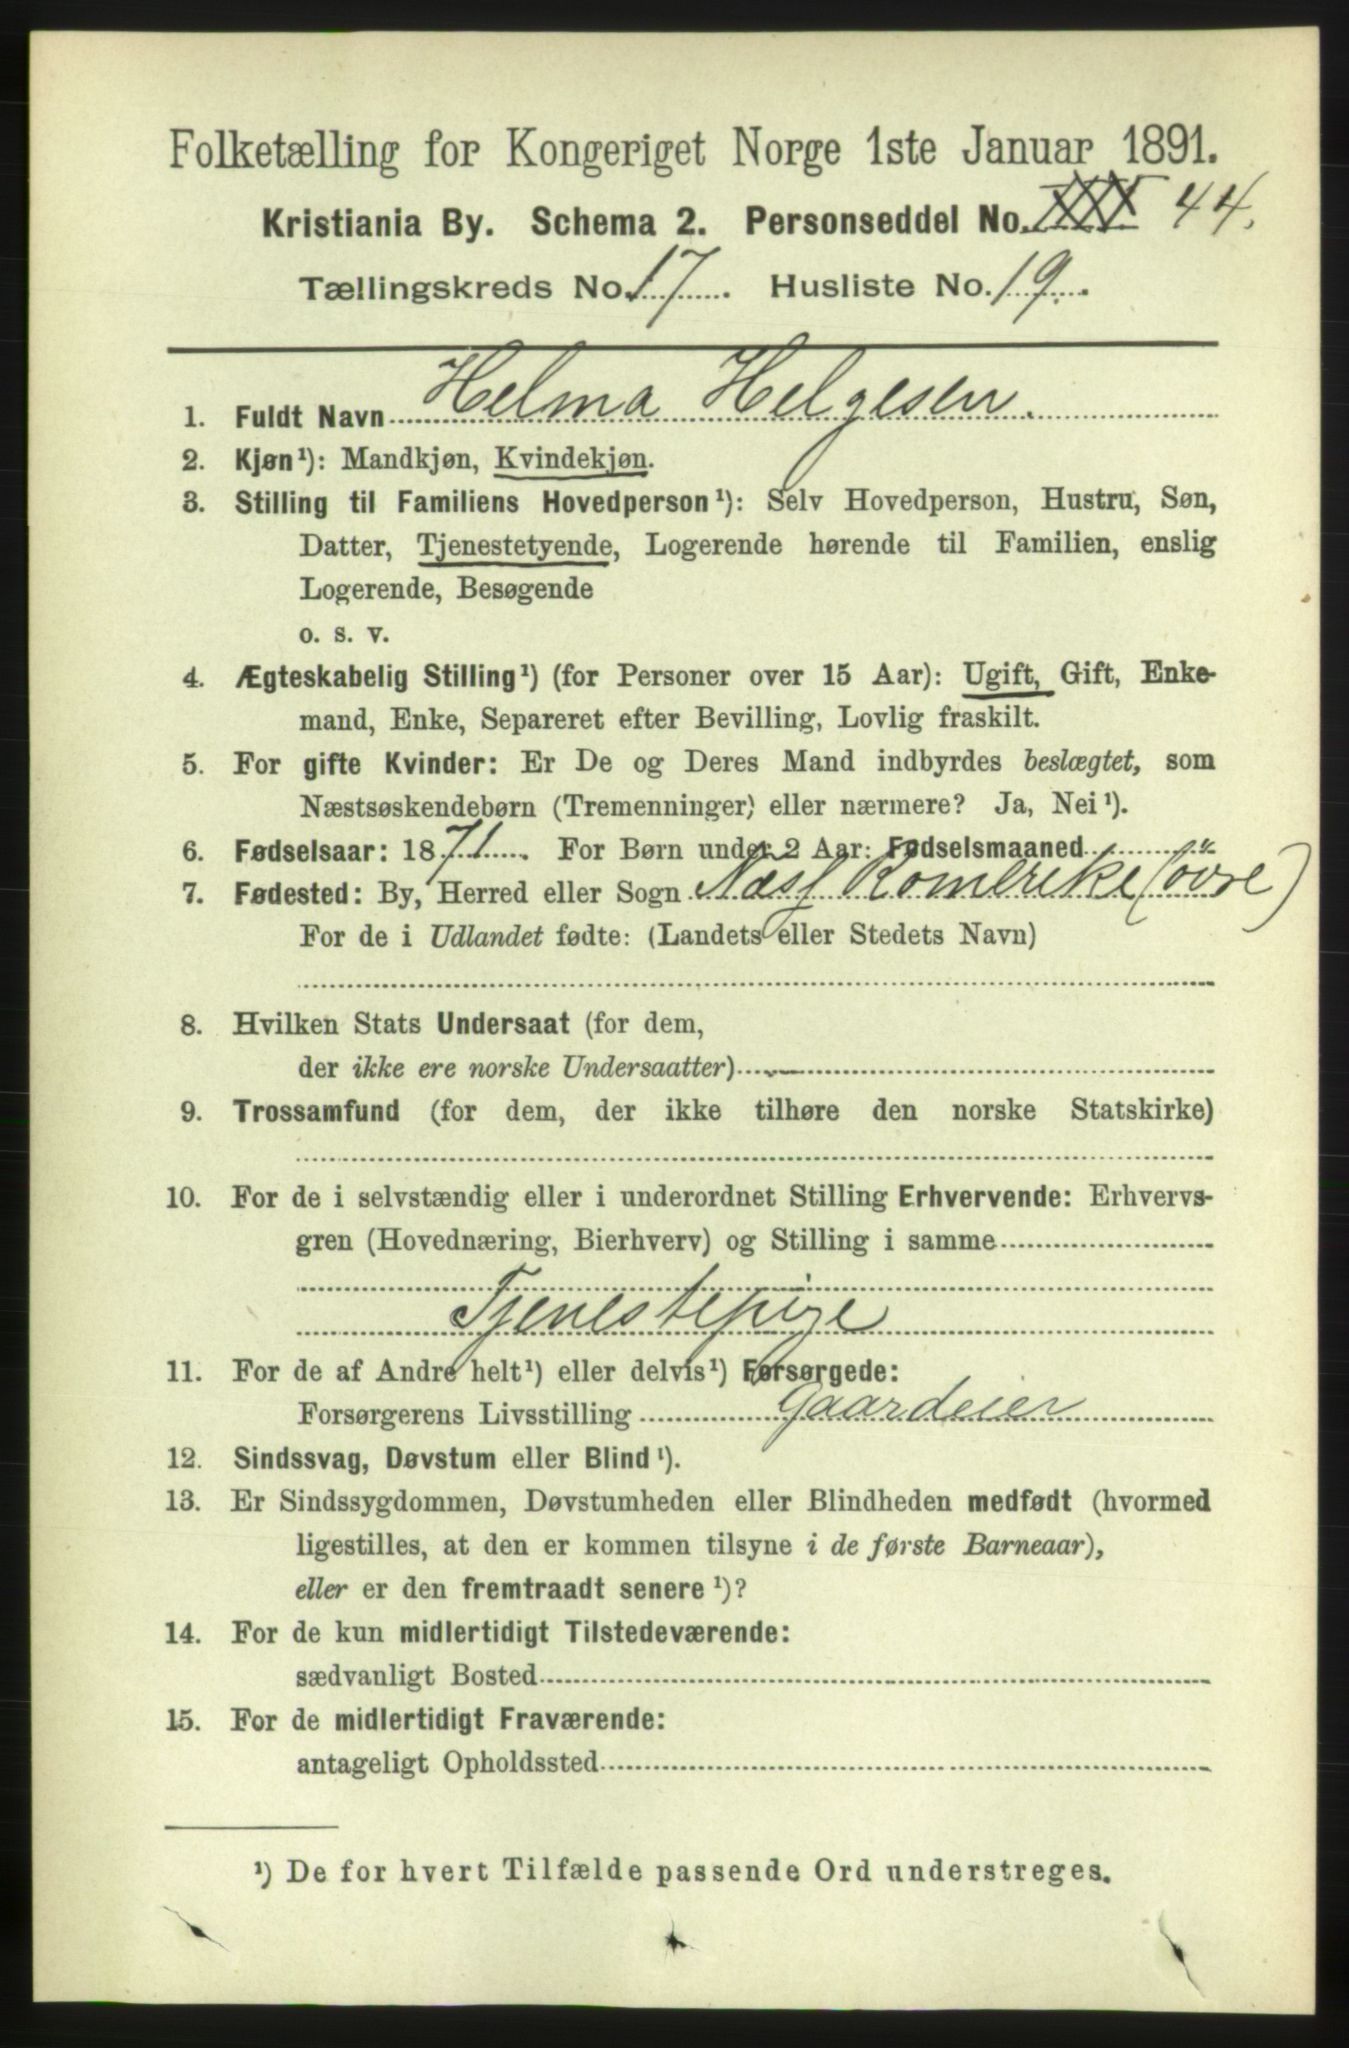 Folketælling for Kongeriget Norge 1ste Januar 1891.
Kristiania By. Schema 2. Personseddel No. 44.
Tællingskreds No. 17. Husliste No. 19.
1. Fuldt Navn Helma Helgesen.
2. Kjøn¹): Mandkjøn, Kvindekjøn.
3. Stilling til Familiens Hovedperson¹): Selv Hovedperson, Hustru, Søn,
Datter, Tjenestetyende, Logerende hørende til Familien, enslig
Logerende, Besøgende
o. s. v.
4. Ægteskabelig Stilling¹) (for Personer over 15 Aar): Ugift, Gift, Enke-
mand, Enke, Separeret efter Bevilling, Lovlig fraskilt.
5. For gifte Kvinder: Er De og Deres Mand indbyrdes beslægtet, som
Næstsøskendebørn (Tremenninger) eller nærmere? Ja, Nei¹).
6. Fødselsaar: 1871. For Børn under 2 Aar: Fødselsmaaned
7. Fødested: By, Herred eller Sogn Næs Romerike (övre)
For de i Udlandet fødte: (Landets eller Stedets Navn)
8. Hvilken Stats Undersaat (for dem,
der ikke ere norske Undersaatter)
9. Trossamfund (for dem, der ikke tilhøre den norske Statskirke)
10. For de i selvstændig eller i underordnet Stilling Erhvervende: Erhvervs-
gren (Hovednæring, Bierhverv) og Stilling i samme
Tjenestepige
11. For de af Andre helt¹) eller delvis¹) Forsørgede:
Forsørgerens Livsstilling Gaardeier
12. Sindssvag, Døvstum eller Blind¹).
13. Er Sindssygdommen, Døvstumheden eller Blindheden medfødt (hvormed
ligestilles, at den er kommen tilsyne i de første Barneaar),
eller er den fremtraadt senere¹)?
14. For de kun midlertidigt Tilstedeværende:
sædvanligt Bosted
15. For de midlertidigt Fraværende:
antageligt Opholdssted
¹) De for hvert Tilfælde passende Ord understreges.